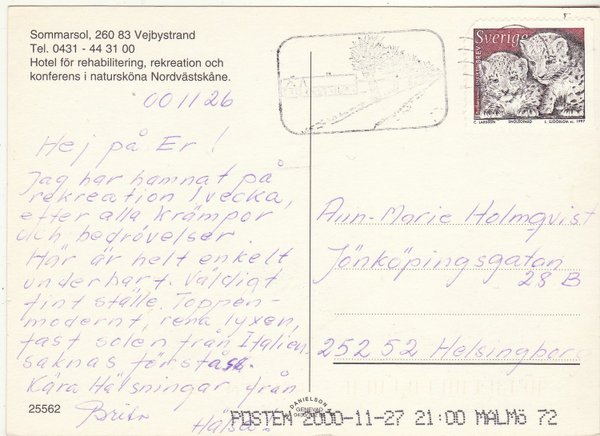 Sommarsol, 260 83 Vejbystrand
Tel. 0431 - 44 31 00
Hotel för rehabilitering, rekreation och
konferens i natursköna Nordvästskåne.
001126
Hej på Er!
Jag har hamnat på
rekreation 1 vecka,
efter alla krämpor
och bedrövelser.
Här är helt enkelt
underbart. Väldigt
fint ställe. Toppen-
modernt, rena lyxen,
fast solen från Italien
saknas förstås.
Kära Hälsningar från
25562
Sverige
BREV
C. LARSSON SNÖLEOPARD L. SJÖÖBLOM sc. 1997
Ann-Marie Holmqvist
Jönköpingsgatan
28 B
252 52 Helsingborg
DANIELSON
GENEVAD
POSTEN 2000-11-27 21:00 MALMÖ 72